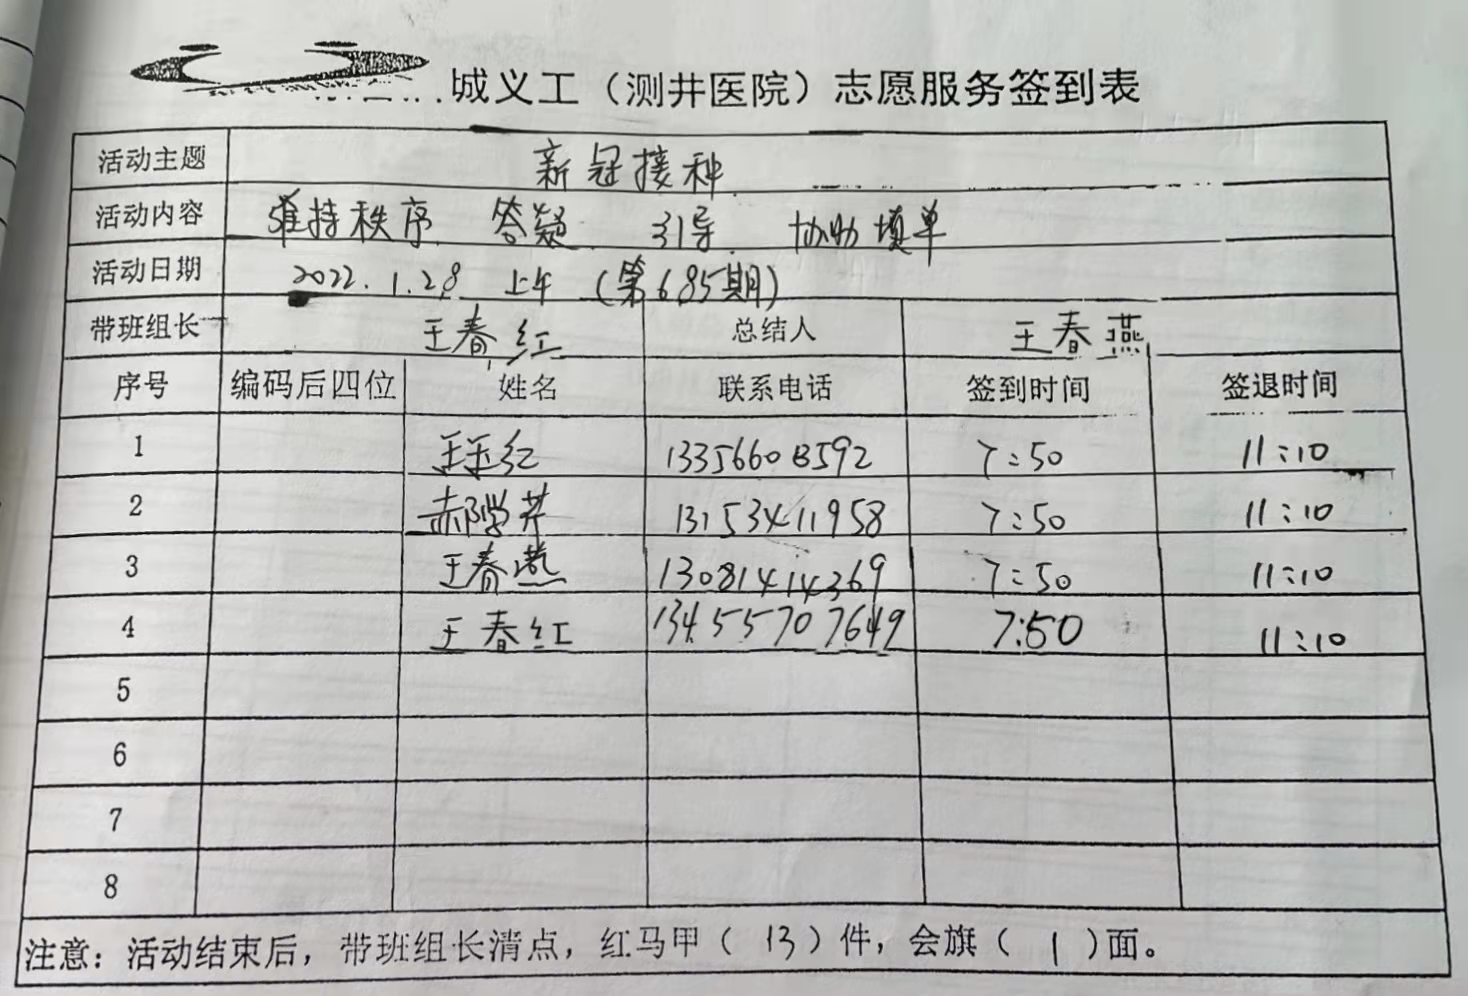 城义工（测井医院）志愿服务签到表
活动主题 新冠接种
活动内容 维持秩序 答疑 引导 协助填单
活动日期 2022.1.28 上午 (第685期)
带班组长 王春红 总结人 王春燕
序号 编码后四位 姓名 联系电话 签到时间 签退时间
1 王玉红 13356608592 7:50 11:10
2 郝学芹 13153411958 7:50 11:10
3 王春燕 13081414369 7:50 11:10
4 王春红 13455707649 7:50 11:10
5
6
7
8
注意：活动结束后，带班组长清点，红马甲（13）件，会旗（1）面。